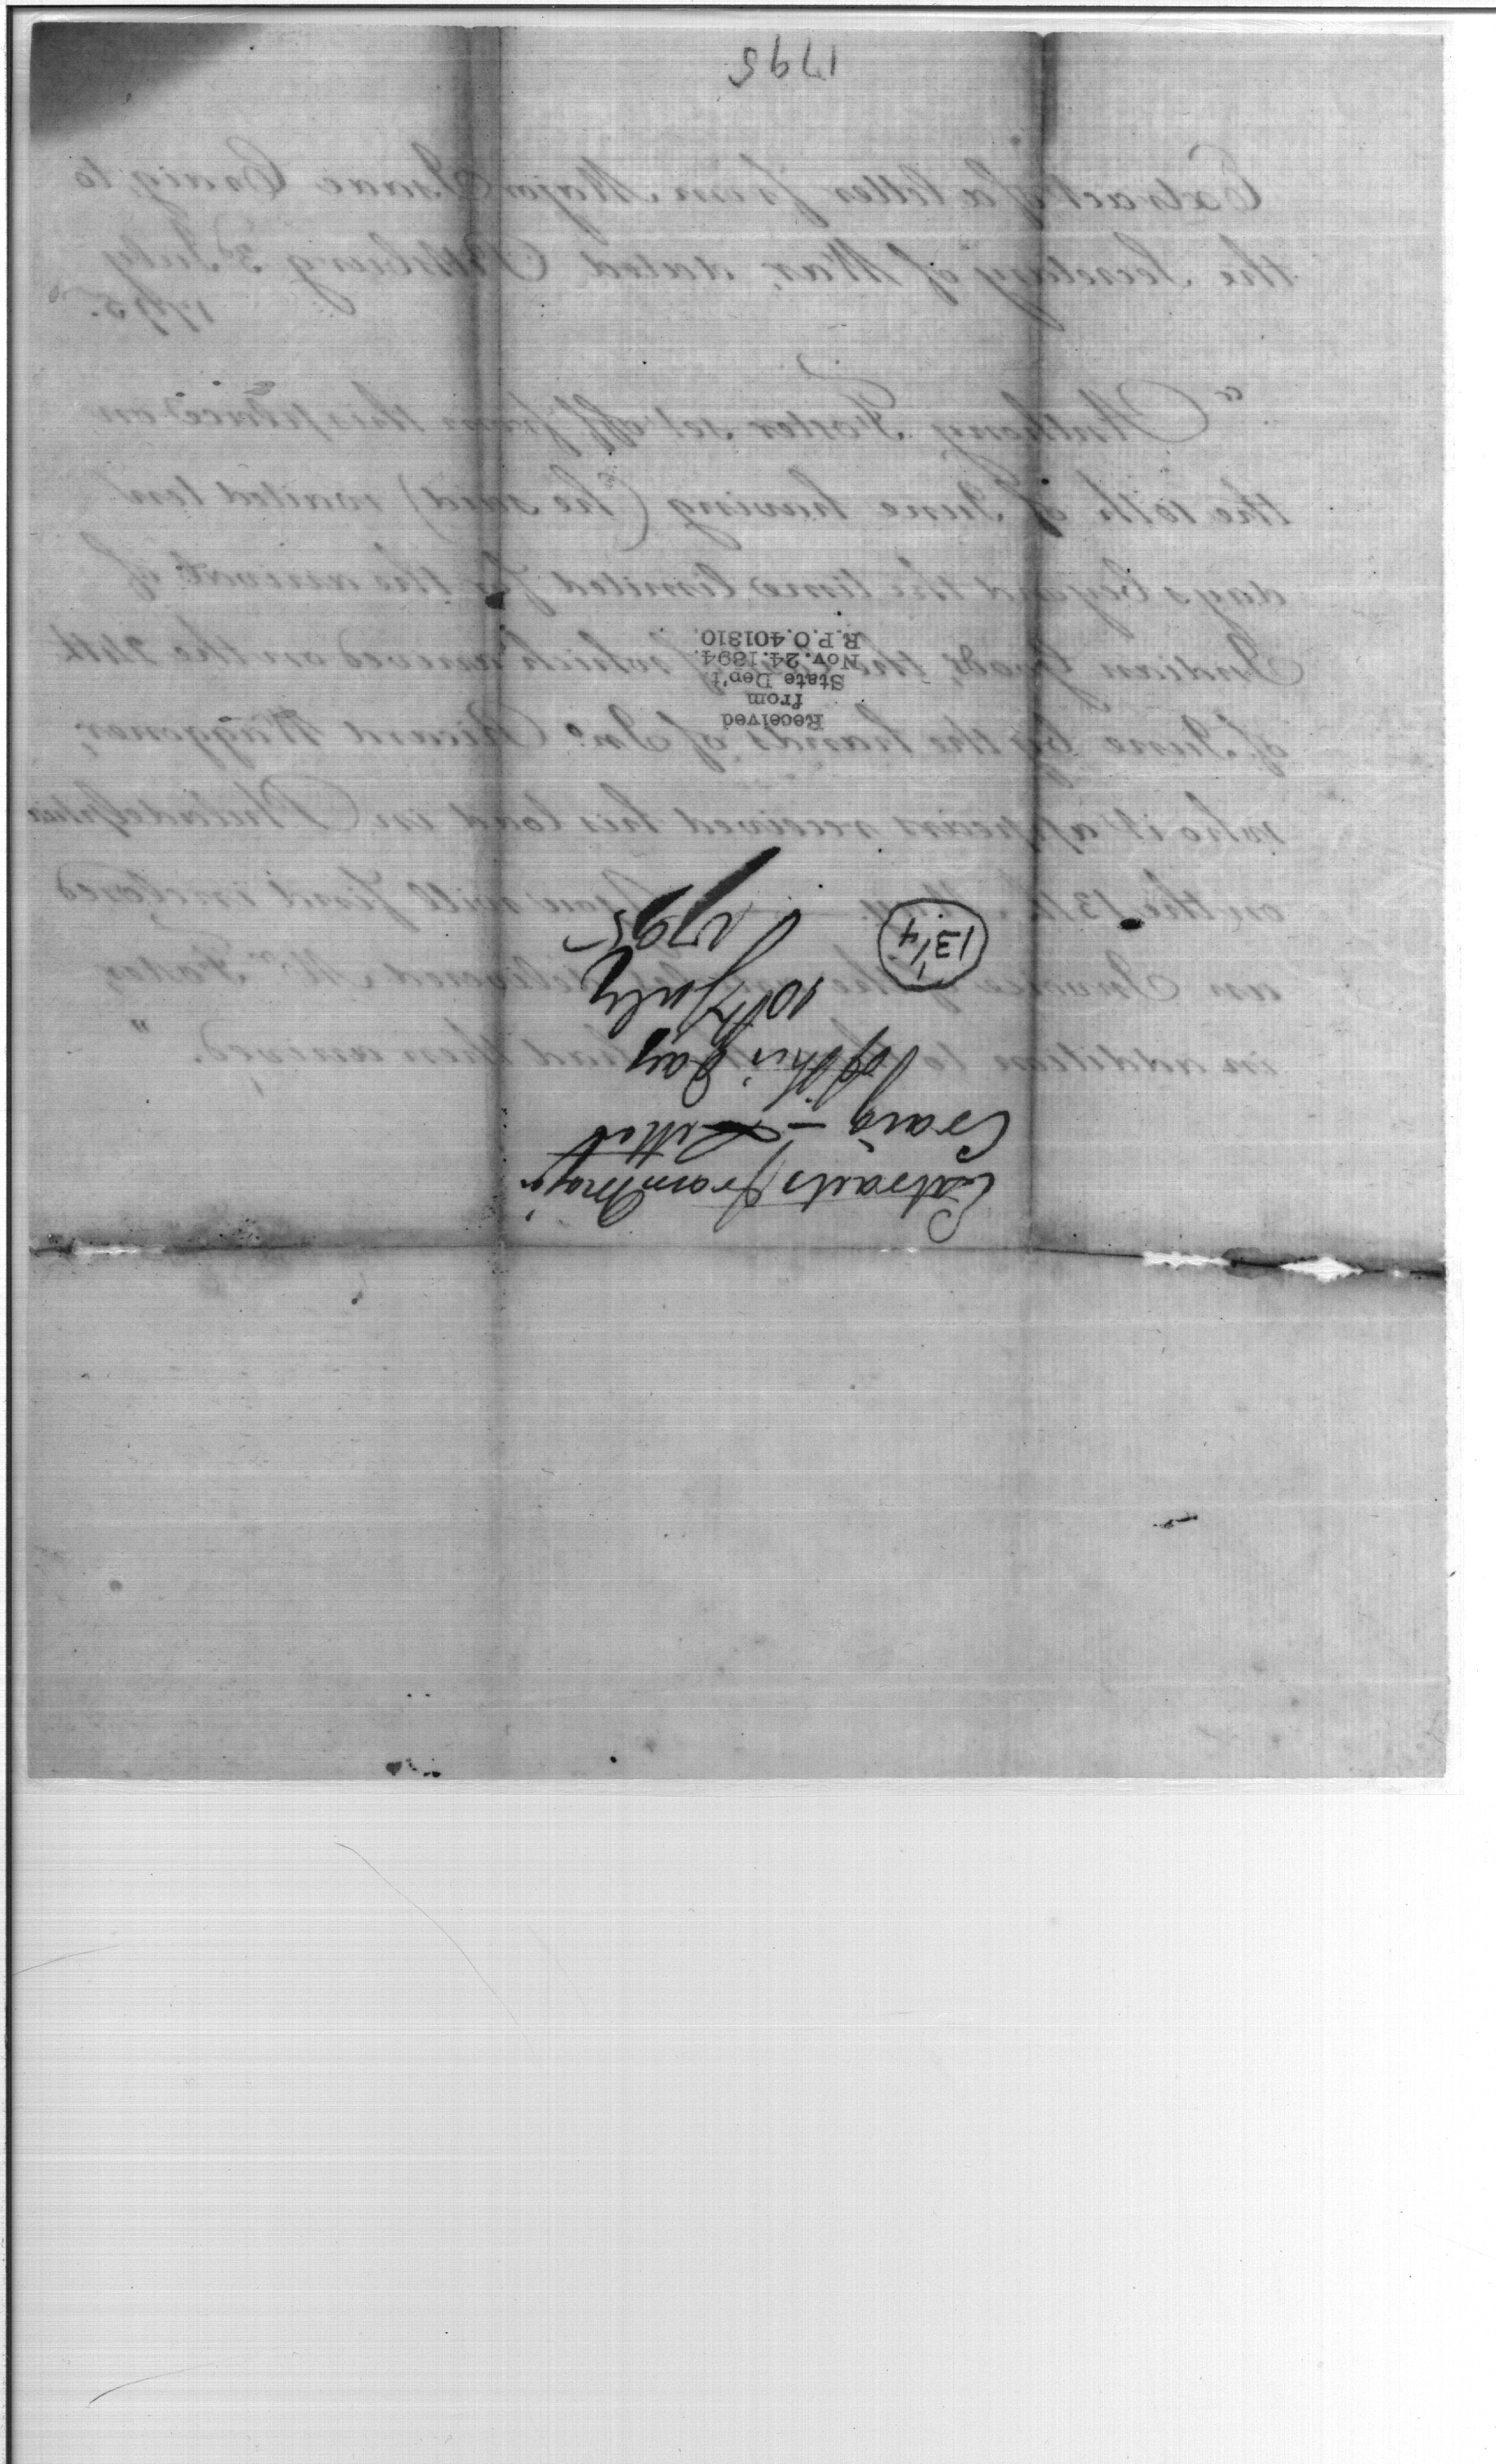 1795
Extract of a letter from Major Isaac Craig, to
the Secretary of War, dated Pittsburg 3d July
1795.
"Anthony Foster set off from this place on
the 10th of June having (he said) waited ten
days beyond the time limited for the arrival of
Indian Goods, the which arrived on the 24th
of June by the hands of Jno. Ricard Waggoner,
who it appears received his load in Philadelphia
on the 13th you will find inclosed
an Invoice of the delivered Mr. Foster,
in addition to had then arrived."
Extracts from Major
Craig — Letter
of this day
10th July
1795
13 1/4
Received
from
State Dep't
Nov. 24. 1894.
R.P.O. 401310.